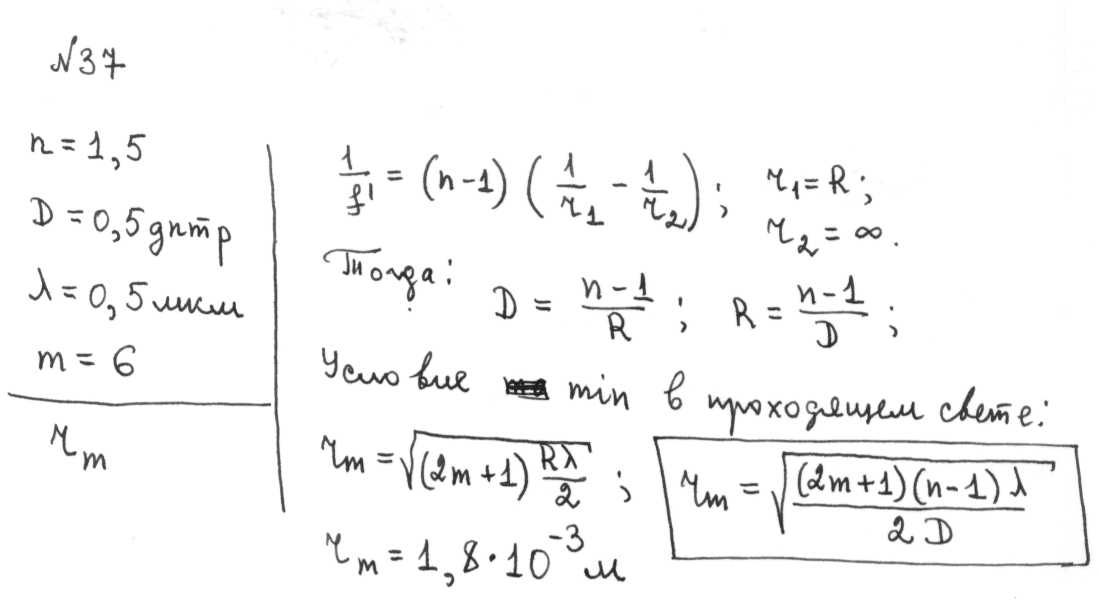 №37
n = 1,5
D = 0,5 дптр
λ = 0,5 мкм
m = 6
r_m
1/f' = (n-1) (1/r_1 - 1/r_2); r_1 = R;
r_2 = ∞.
Тогда: D = (n-1)/R; R = (n-1)/D;
Условие min в проходящем свете:
r_m = √((2m+1) Rλ/2); r_m = √((2m+1)(n-1)λ/2D)
r_m = 1,8·10^-3 м